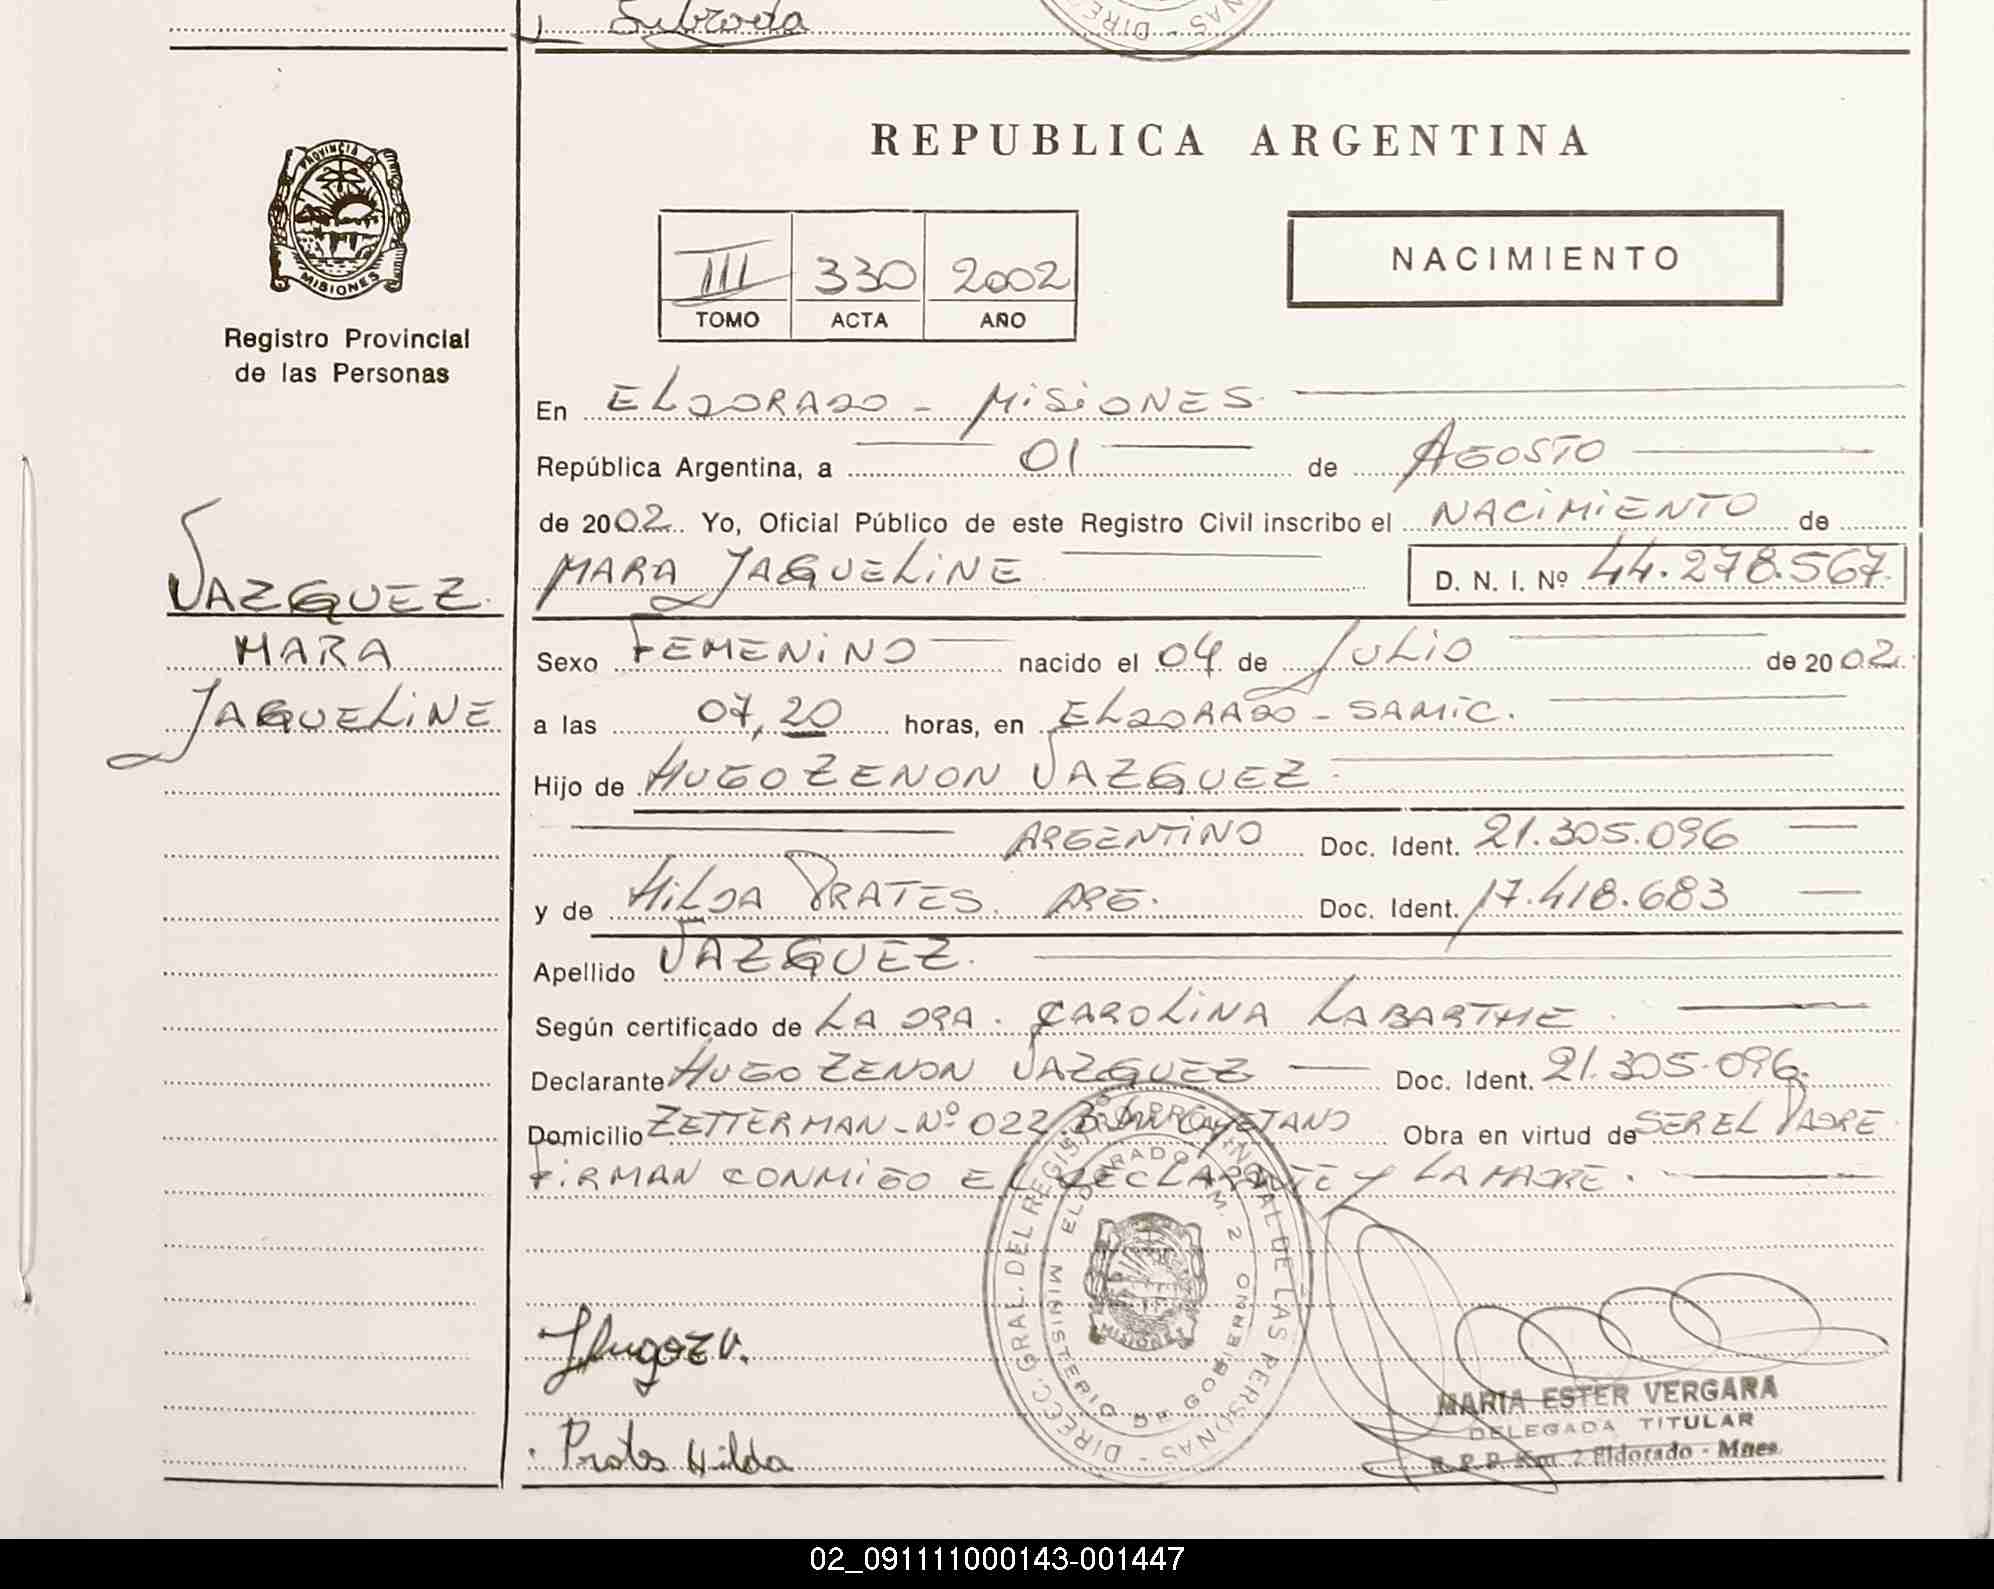 Subroda
REPUBLICA ARGENTINA
PROVINCIA DE MISIONES
Registro Provincial
de las Personas
III 330 2002
TOMO ACTA AÑO
NACIMIENTO
En ELDORADO - MISIONES.
República Argentina, a 01 de AGOSTO
de 2002. Yo, Oficial Público de este Registro Civil inscribo el NACIMIENTO de
MARA JAQUELINE D. N. I. Nº 44.278.567.
VAZQUEZ.
MARA
JAQUELINE
Sexo FEMENINO nacido el 04 de JULIO de 2002.
a las 07,20 horas, en ELDORADO - SAMIC.
Hijo de HUGO ZENON VAZQUEZ.
ARGENTINO Doc. Ident. 21.305.096
y de HILDA PRATES. ARG. Doc. Ident. 17.418.683
Apellido VAZQUEZ.
Según certificado de LA DRA. CAROLINA LABARTHE.
Declarante HUGO ZENON VAZQUEZ Doc. Ident. 21.305.096.
Domicilio ZETTERMAN - Nº 022 B. SAN CAYETANO Obra en virtud de SER EL PADRE
FIRMAN CONMIGO EL DECLARANTE Y LA MADRE.
DIRECC. GRAL. DEL REGISTRO PROVINCIAL DE LAS PERSONAS -
MINISTERIO DE GOBIERNO
ELDORADO KM. 2
MISIONES
Hugo Z V.
Prates Hilda
MARIA ESTER VERGARA
DELEGADA TITULAR
R.P.P. Km. 2 Eldorado - Mnes.
02_091111000143-001447